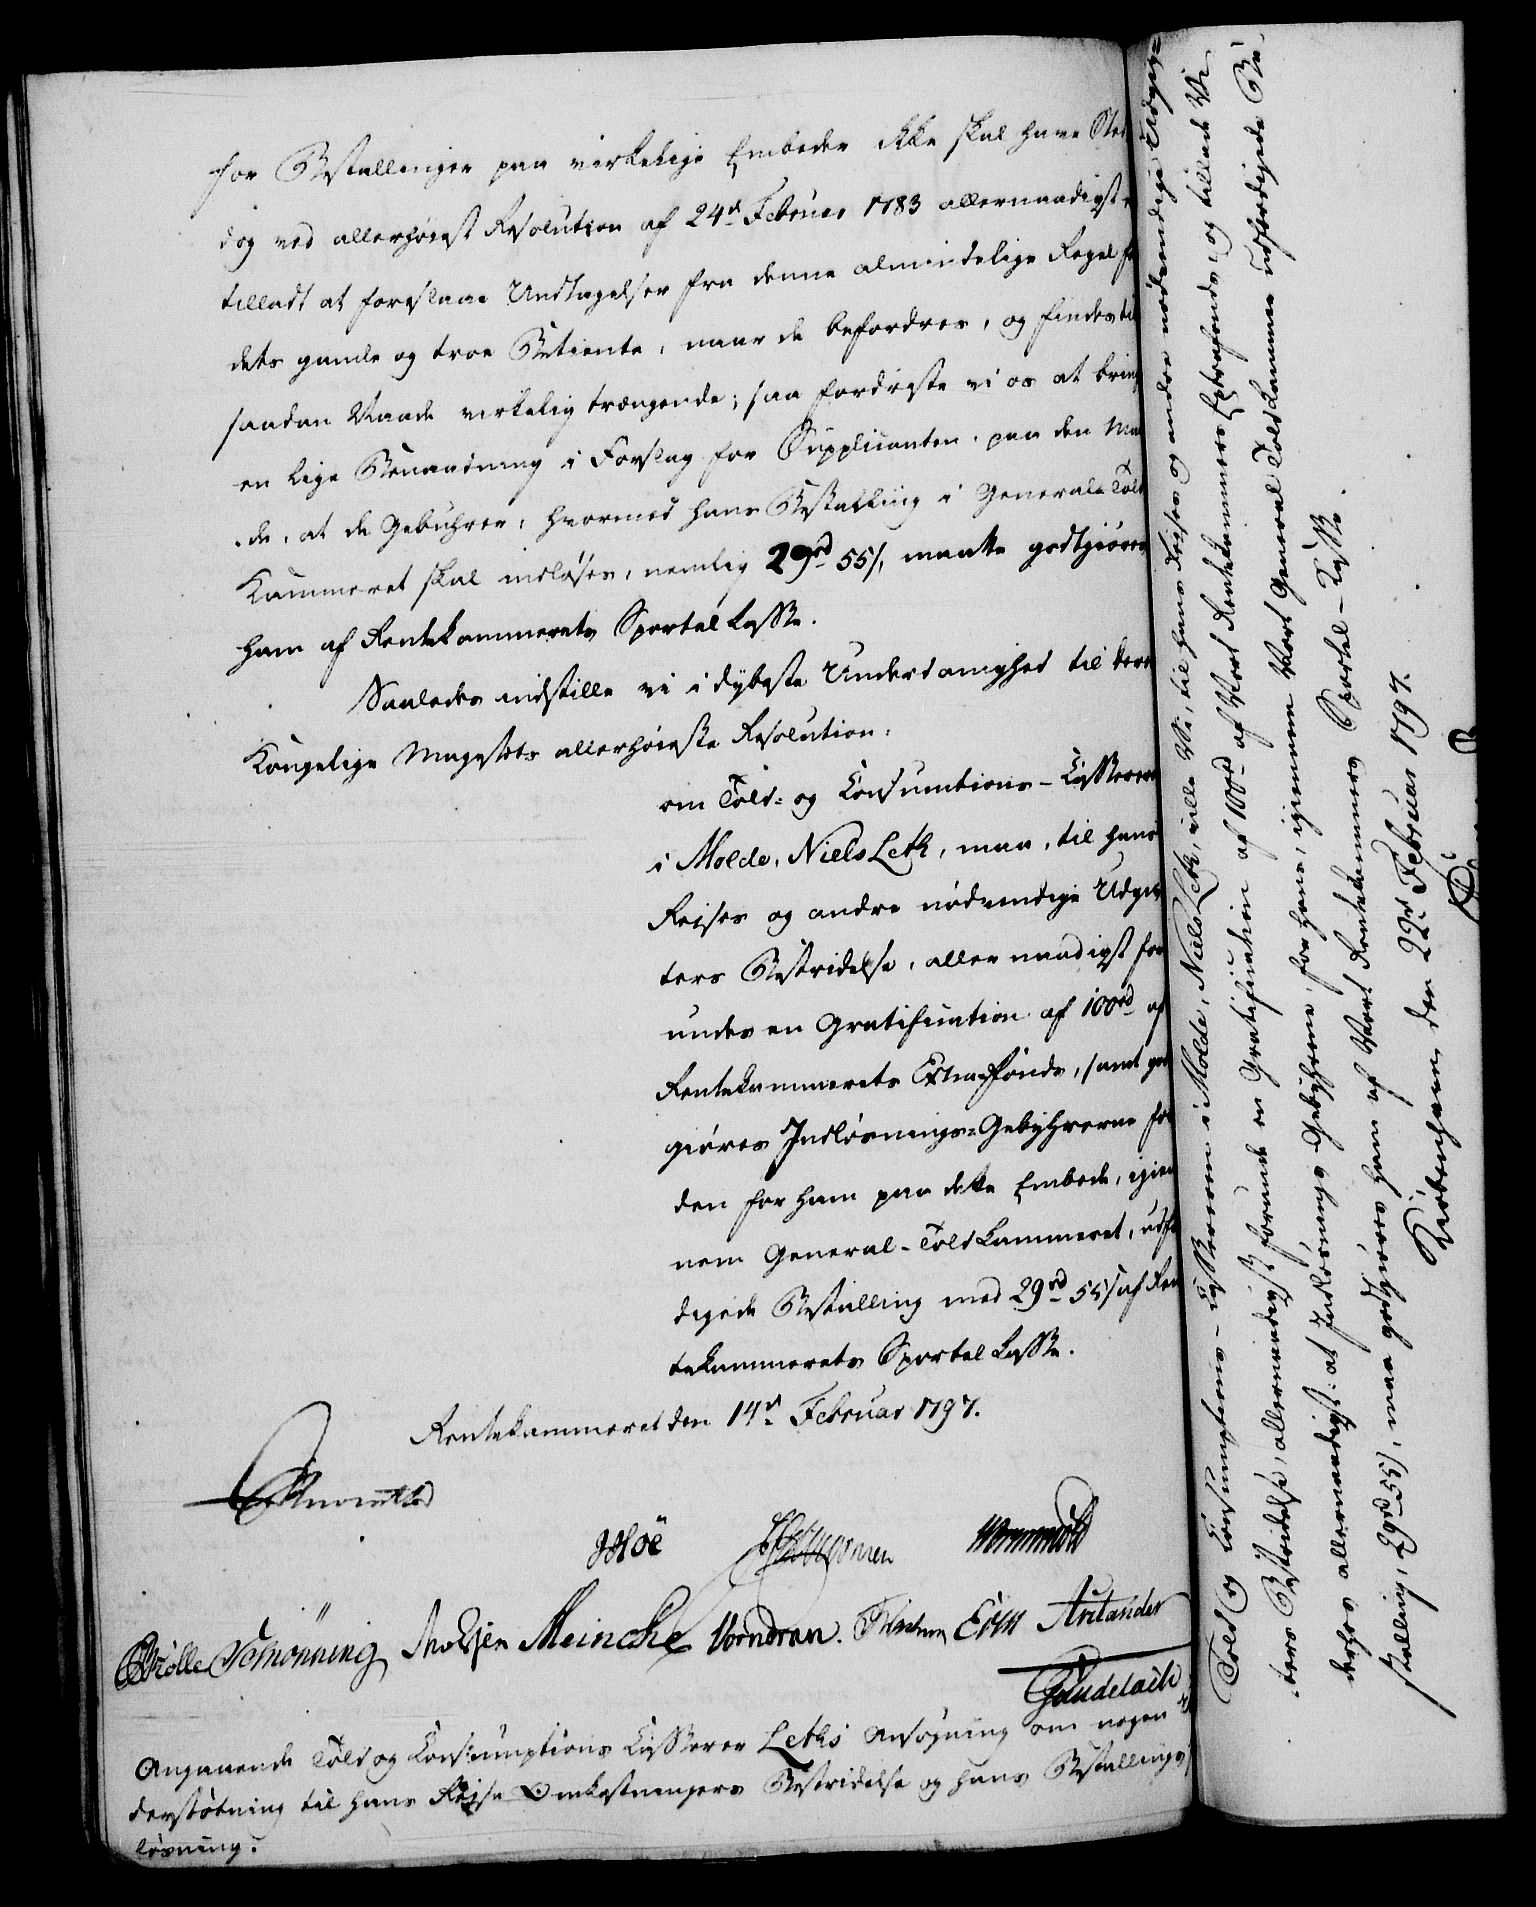 for Bestallinger paa virkelige Embeder ikke skal have Sted
dog ved allerhøiest Resolution af 24d Februar 1783 allernaadigst
tilladt at foreslaae Undtagelser fra denne almindelige Regel
dets gamle og troe Betiente, naar de befordres, og findes til
saadan Naade virkelig trængende; saa fordriste vi os at bring
en lige Benaadning i Forslag for Supplicanten, paa den Maa
de, at de Gebuhrer, hvormed hans Bestalling i General-Told
Kammeret skal indløses, nemlig 29rd 55s, maatte godtgiøres
ham af Rentekammerets Sportel Casse.
Saaledes indstille vi i dybeste Underdanighed til Deres
Kongelige Majestets allerhøieste Resolution:
om Told- og Consumtions-Casserer
i Molde, Niels Leth, maa, til hans
Reises og andre nødvendige Udgif
ters Bestridelse, allernaadigst for
undes en Gratification af 100rd af
Rentekammerets Extra-Fonds, samt god
giøres Indløsnings-Gebyhrerne for
den for ham paa dette Embede, igien
nem General-Toldkammeret, udfær
digede Bestalling med 29rd 55s af Ren
tekammerets Sportel Casse.
Rentekammeret den 14d Februar 1797.
JHoë
Wormskiold
Schønning Meincke Vorndran.
Gaudelach
Angaaende Told og Consumptions Casserer Leths Ansøgning om nogen
derstøtning til hans Reise Omkostningers Bestridelse og hans Bestallings
løsning.
Told og Consumptions-Casserern i Molde, Niels Leth, ville Vi, til hans Reises og andre nødvendige Udgif-
ters Bestridelse, allernaadigst forunde en Gratification af 100rd af Vort Rentekammers Extrafonds, og tillade Vi
derhos allernaadigst: at Indløsnings Gebyhrerne for hans, igiennem Vort General Toldkammer udfærdigede Be-
stalling, 29rd 55s, maae godtgiøres ham af Vort Rentekammers Sportel-Casse.
Kiøbenhavn den 22d Februar 1797.